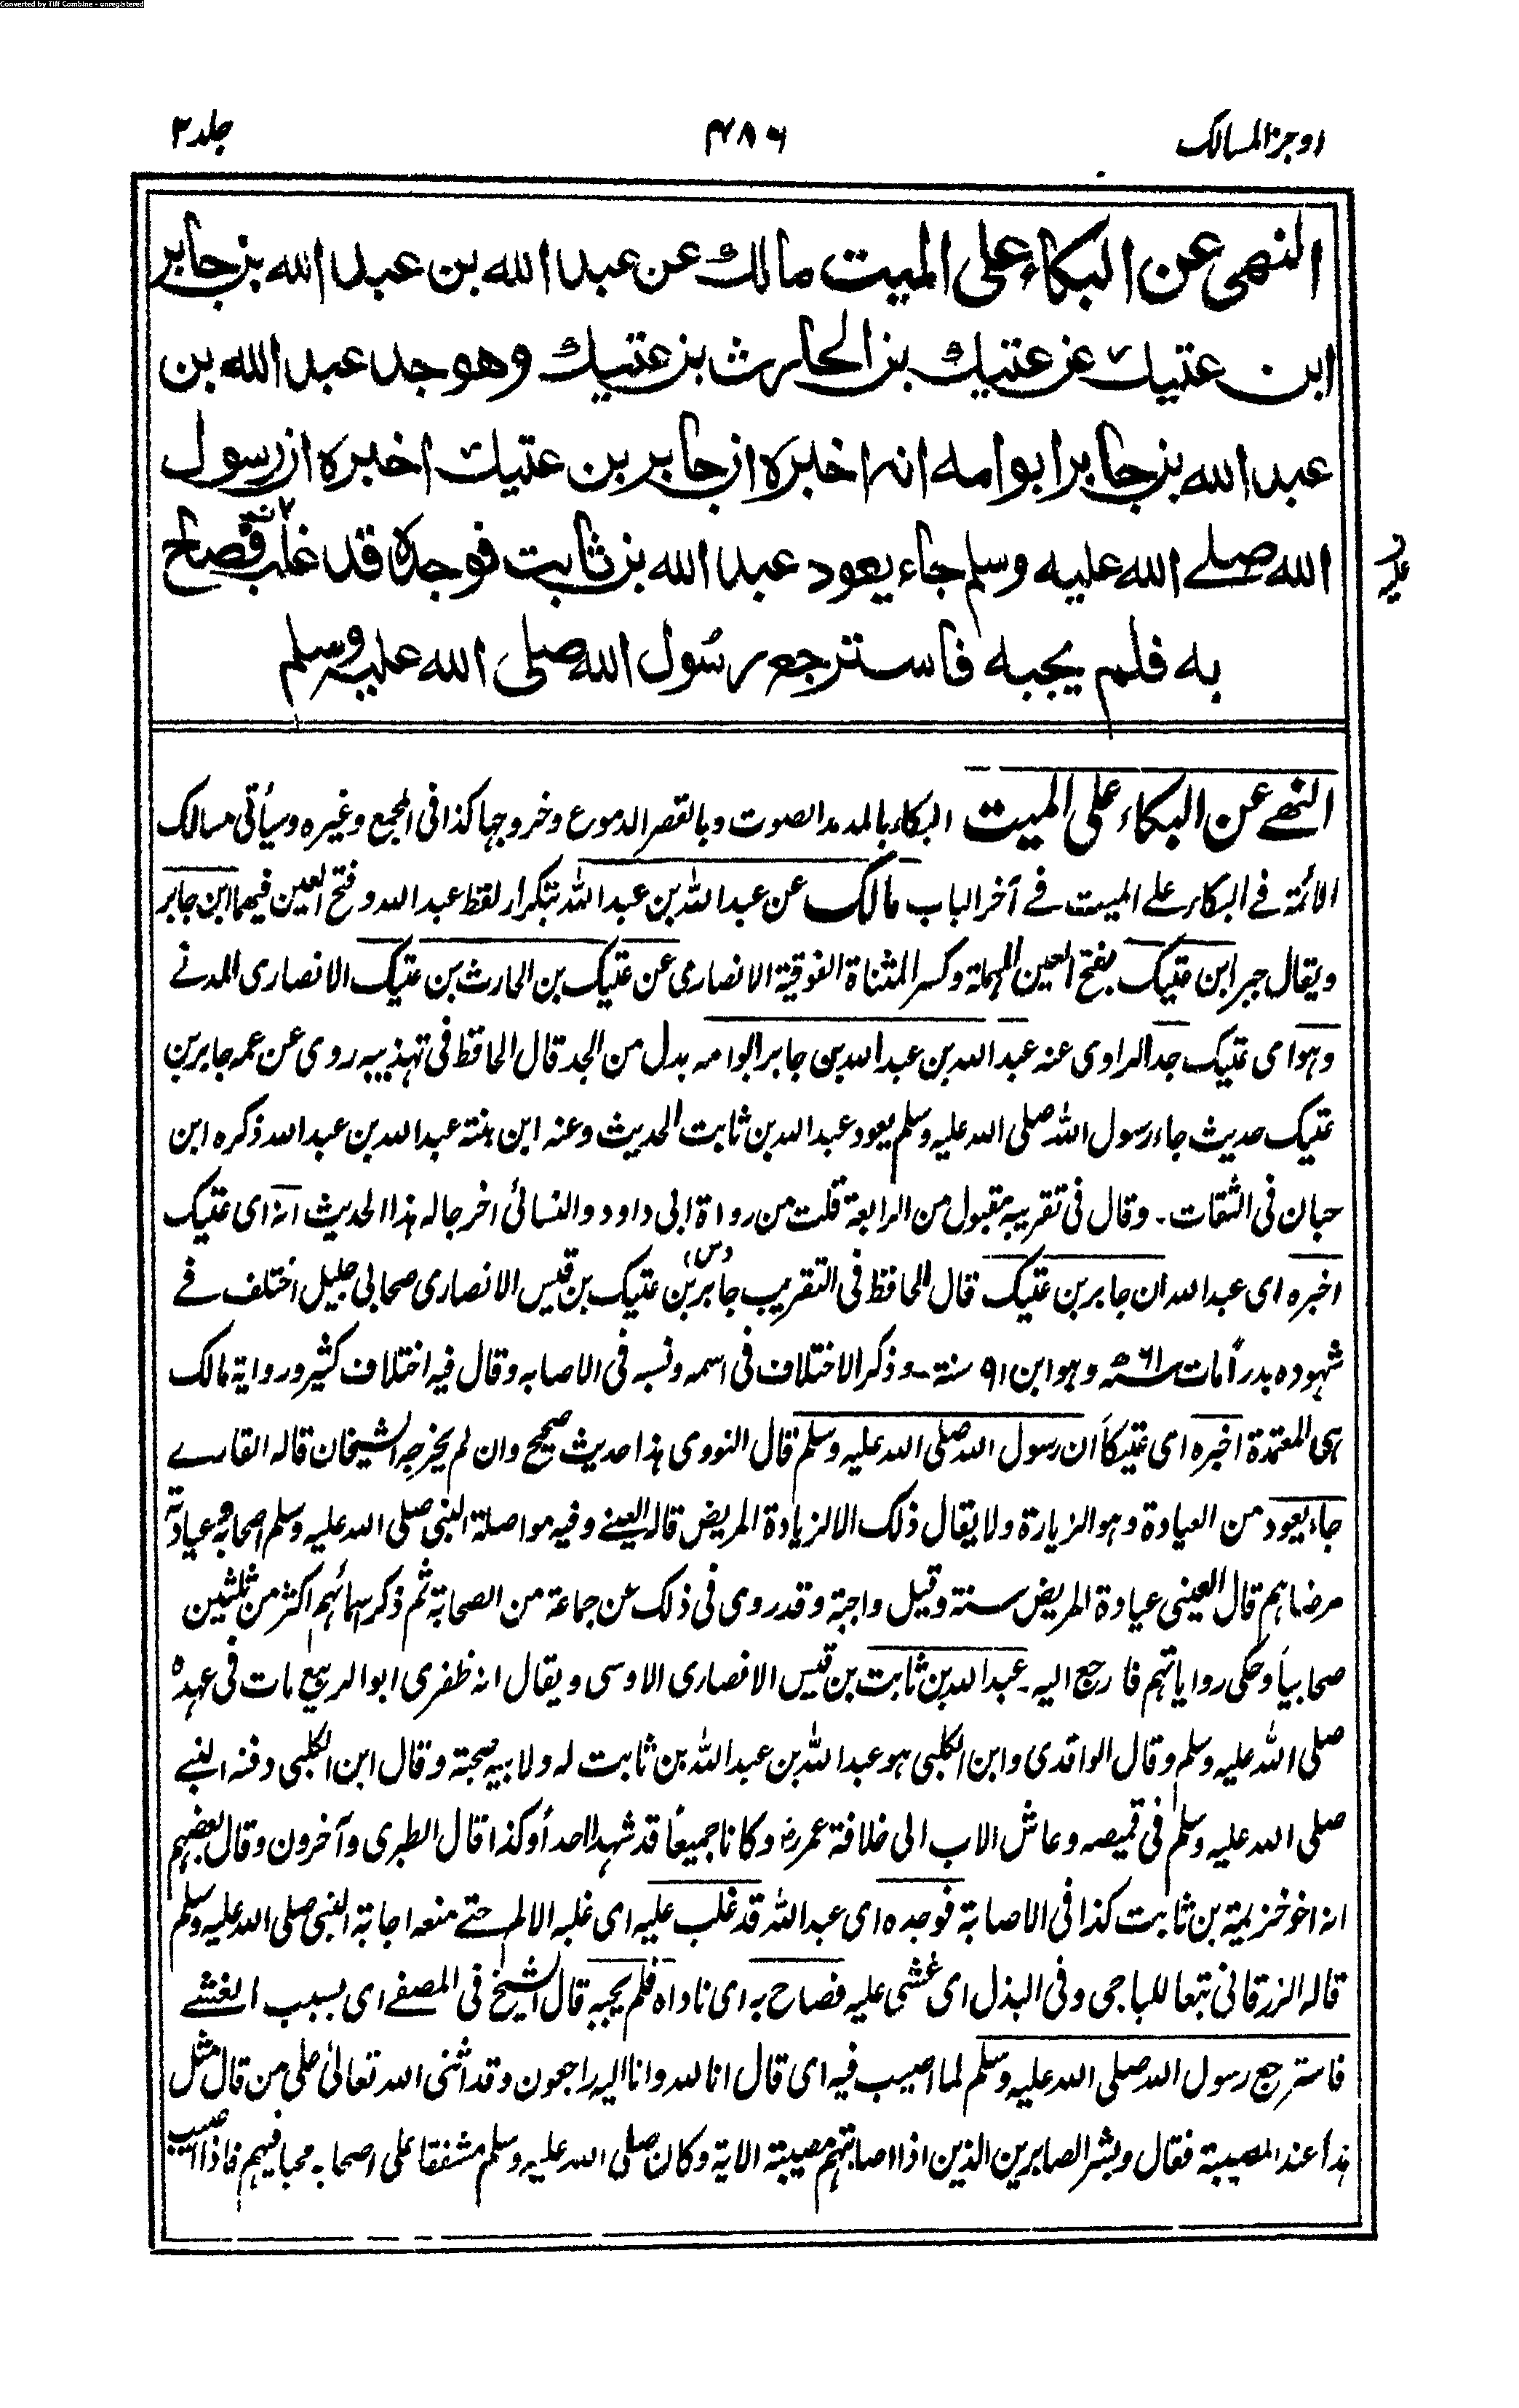 Converted by Tiff Combine - unregistered
اوجز المسالك ۴۸۶ جلد ۲
النهى عن البكاء على الميت مالك عن عبد الله بن عبد الله بن جابر
ابن عتيك عن عتيك بن الحارث بن عتيك وهو جد عبد الله بن
عبد الله بن جابر ابو امه انه اخبره ان جابر بن عتيك اخبره ان رسول
الله صلى الله عليه وسلم جاء يعود عبد الله بن ثابت فوجده قد غلب فصاح
عليه
به فلم يجبه فاسترجع رسول الله صلى الله عليه وسلم
النهى عن البكاء على الميت البكاء بالمد مد الصوت وبالقصر الدموع وخروجها كذا فى المجمع وغيره وسيأتى مسالك
الائمة فى البكاء على الميت فى آخر الباب مالك عن عبد الله بن عبد الله بتكرار لفظ عبد الله وفتح العين فيهما ابن جابر
ويقال جبر ابن عتيك بفتح العين المهملة وكسر المثناة الفوقية الانصارى عن عتيك بن الحارث بن عتيك الانصارى المدنى
وهو اى عتيك جد الراوى عنه عبد الله بن عبد الله بن جابر ابو امه بدل من الجد قال الحافظ فى تهذيبه روى عن عمه جابر بن
عتيك حديث جاء رسول الله صلى الله عليه وسلم يعود عبد الله بن ثابت الحديث وعنه ابن بنته عبد الله بن عبد الله ذكره ابن
حبان فى الثقات - وقال فى تقريبه مقبول من الرابعة قلت من رواة ابى داود والنسائى اخرجا له هذا الحديث انه اى عتيك
اخبره اى عبد الله ان جابر بن عتيك قال الحافظ فى التقريب جابر بن (د س) عتيك بن قيس الانصارى صحابى جليل اختلف فى
شهوده بدرا مات سنة ۶۱ ھ وهو ابن ۹۱ سنة - وذكر الاختلاف فى اسمه ونسبه فى الاصابه وقال فيه اختلاف كثير ورواية مالك
هى المعتمدة اخبره اى عتيكا ان رسول الله صلى الله عليه وسلم قال النووى هذا حديث صحيح وان لم يخرجه الشيخان قاله القارى
جاء يعود من العيادة وهو الزيارة ولا يقال ذلك الا لزيادة المريض قاله العينى وفيه مواصلة النبى صلى الله عليه وسلم اصحابه وعيادته
مرضاهم قال العينى عيادة المريض سنة وقيل واجبة وقد روى فى ذلك عن جماعة من الصحابة ثم ذكر اسمائهم اكثر من ثلثين
صحابيا وحكى رواياتهم فارجع اليه - عبد الله بن ثابت بن قيس الانصارى الاوسى ويقال انه ظفرى ابو الربيع مات فى عهده
صلى الله عليه وسلم وقال الواقدى وابن الكلبى هو عبد الله بن عبد الله بن ثابت له ولابيه صحبة وقال ابن الكلبى دفنه النبى
صلى الله عليه وسلم فى قميصه وعاش الاب الى خلافة عمر رض وكانا جميعا قد شهدا احدا وكذا قال الطبرى وآخرون وقال بعضهم
انه اخو خزيمة بن ثابت كذا فى الاصابة فوجده اى عبد الله قد غلب عليه اى غلبه الالم حتى منعه اجابة النبى صلى الله عليه وسلم
قاله الزرقانى تبعا للباجى وفى البذل اى غشى عليه فصاح به اى ناداه فلم يجبه قال الشيخ فى المصفى اى بسبب الغشى
فاسترجع رسول الله صلى الله عليه وسلم لما اصيب فيه اى قال انا لله وانا اليه راجعون وقد اثنى الله تعالى على من قال مثل
هذا عند المصيبة فقال وبشر الصابرين الذين اذا اصابتهم مصيبة الاية وكان صلى الله عليه وسلم مشفقا على اصحابه محبا فيهم فاذا اصيب